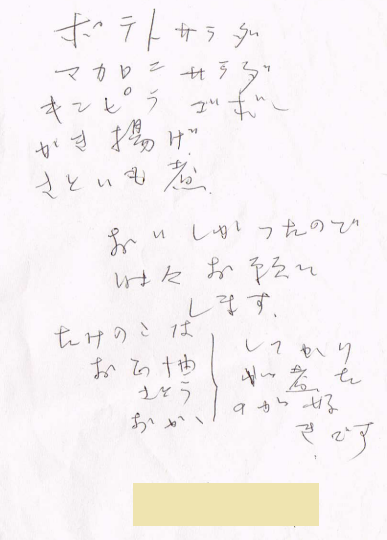 ポテトサラダ
マカロニサラダ
キンピラゴボー
かき揚げ
さといも煮
おいしかったので
お願い
します。
たけのこは
さとう
おかか
してかり
煮た
のが好
きです